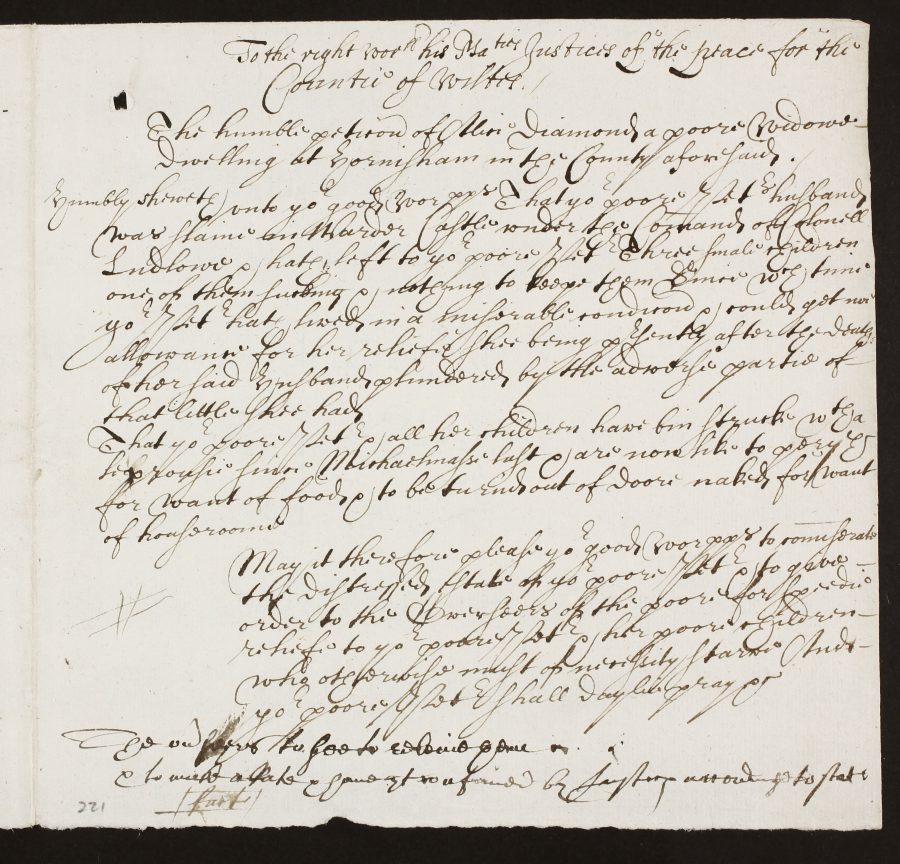 To the right worll his Maties Justices of the peace for the
Countie of Wiltes./
The humble peticon of Alice Diamond a poore Widowe
dwelling at Hornisham in the County aforesaid.
Humbly sheweth vnto yor good Worpps That yor poore Petr husband
was slaine in Warder Castle vnder the Comand of Colonell
Ludlowe & hath left to yor poore Petr Three smale children
one of them sucking & nothing to keepe them Since wch time
yor Petr hath lived in a miserable condicon & could get noe
allowance for her reliefe shee being psently after the death
of her said Husband plundered by the adverse partie of
that little shee had
That yor poore Petr & all her children have bin strucke wth a
leprousie since Michaelmasse last & are now like to perish
for want of food & to be turnd out of doore naked for want
of houseroome
May it therefore please yor good Worpps to comiserate
the distressed estate of yor poore Petr & to give
order to the Overseers of the poore for speedie
reliefe to yor poore Petr & her poore children
who otherwise must of necessity starve And
yor poore Petr shall daylie pray &c
The to see to releive
& to make a Rate & by Justices according to stat
221